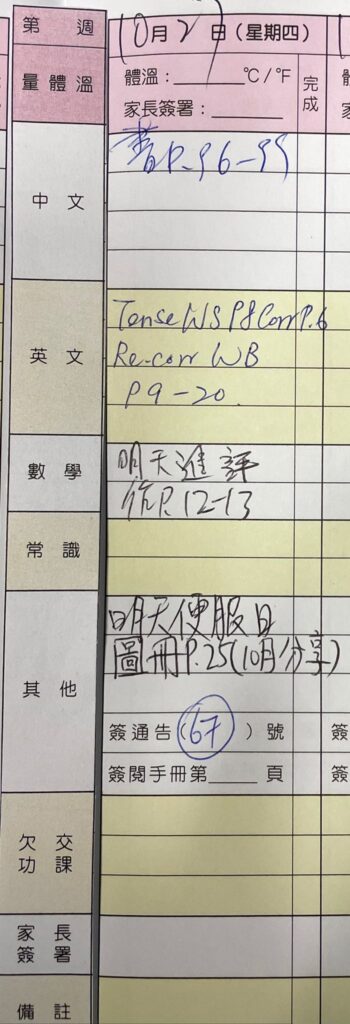 第 週
10月2日（星期四）
量體溫
體溫：______℃/℉
家長簽署：______
完成
中文
書P.96-99
英文
Tense WS P8 Corr P.6
Re-corr WB
P9-20
數學
明天進評
作P.12-13
常識
其他
明天便服日
圖冊P.25(10月分享)
簽通告(67)號
簽閱手冊第____頁
欠交功課
家長簽署
備註